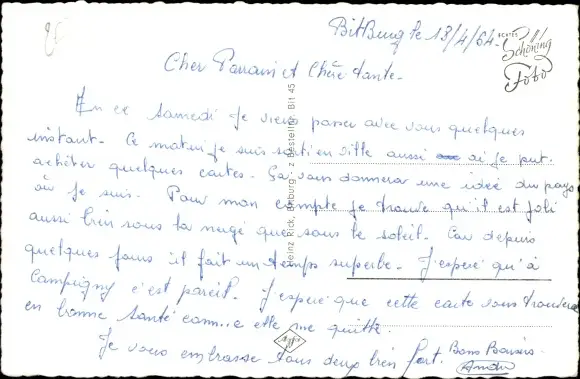 BitBurg le 18/4/64.
Schöning
Foto
Cher Parrain et Chère tante.
En ce samedi je viens passer avec vous quelques
instant. Ce matin je suis sorti en ville aussi ai je put
achêter quelques cartes. Sa vous donnera une idée du pays
où je suis. Pour mon compte je trouve qu'il est joli
aussi bien sous la neige que sous le soleil. Car depuis
quelques jours il fait un temps superbe. J'espère qu'à
Campigny c'est pareil. J'espère que cette carte vous trouvera
en bonne santé comme elle me quitte.
Je vous embrasse tous deux bien fort. Bons Baisers.
Heinz Rick, Bitburg z Bestell-Nr. Bit 45
Agfa